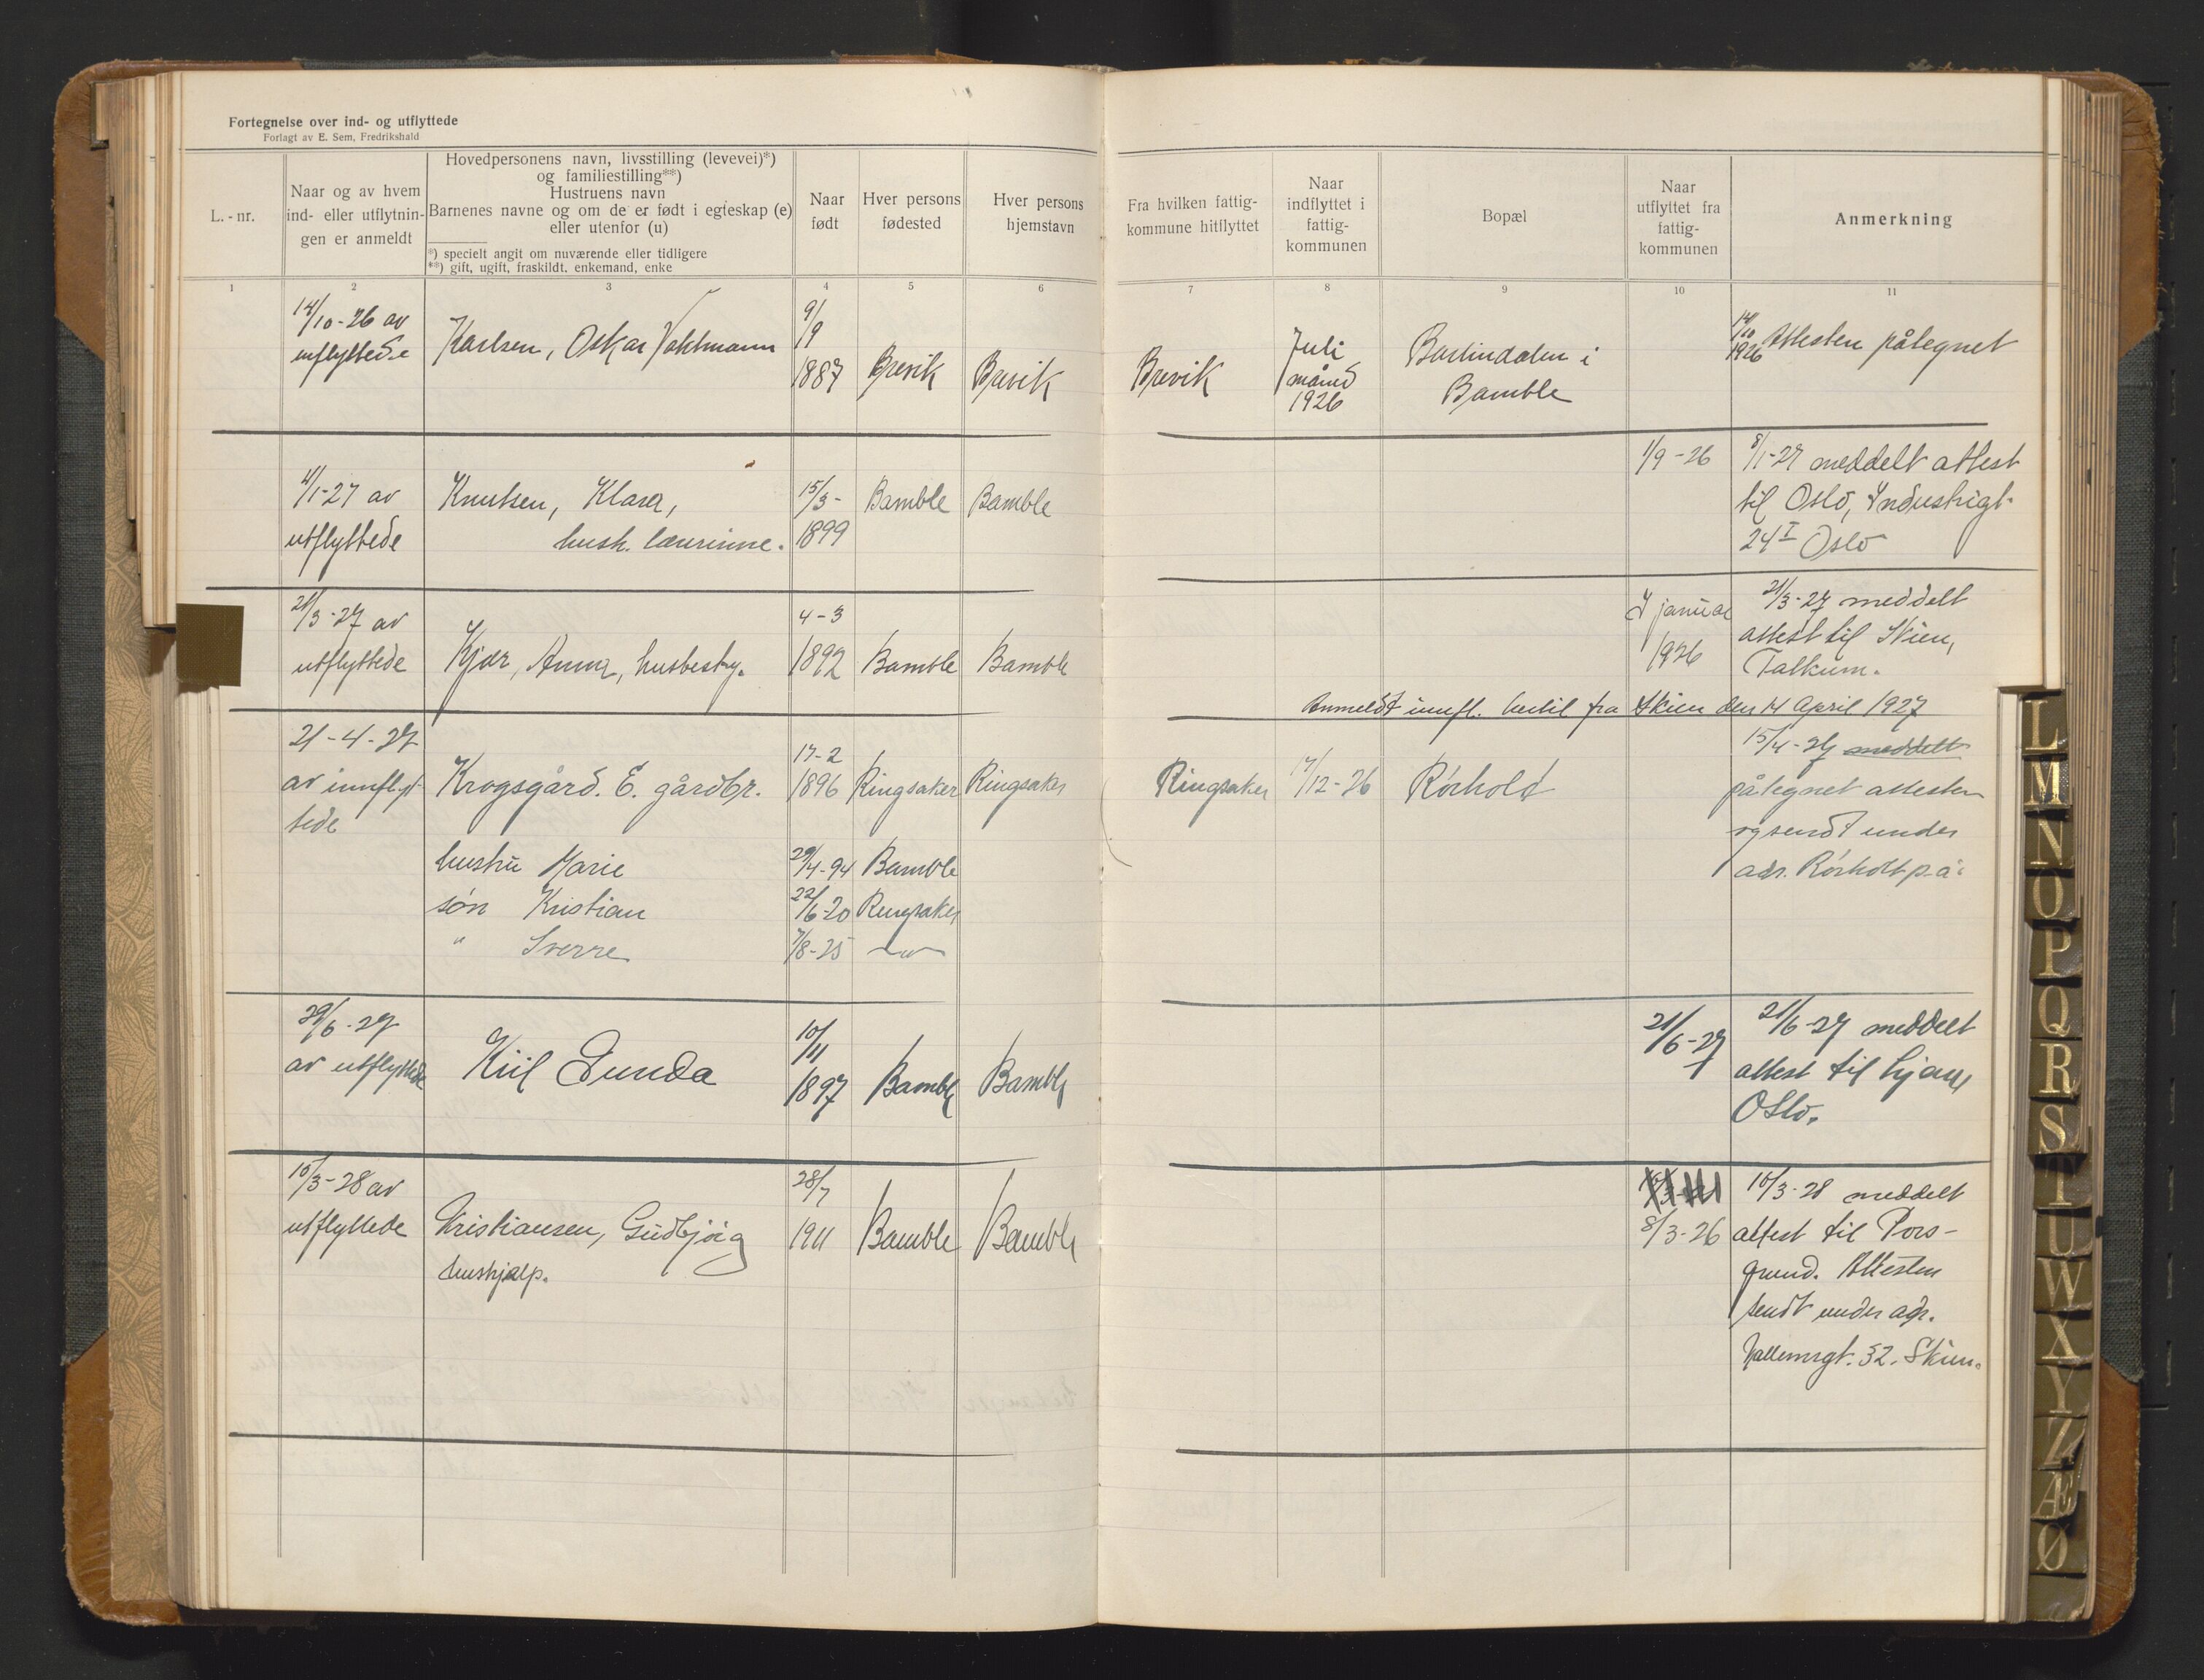 Fortegnelse over ind- og utflyttede
Forlagt av E. Sem, Fredrikshald
L. - nr.
Naar og av hvem
ind- eller utflytnin-
gen er anmeldt
Hovedpersonens navn, livsstilling (levevei)*)
og familiestilling**)
Hustruens navn
Barnenes navne og om de er født i egteskap (e)
eller utenfor (u)
*) specielt angit om nuværende eller tidligere
**) gift, ugift, fraskildt, enkemand, enke
Naar
født
Hver persons
fødested
Hver persons
hjemstavn
Fra hvilken fattig-
kommune hitflyttet
Naar
indflyttet i
fattig-
kommunen
Bopæl
Naar
utflyttet fra
fattig-
kommunen
Anmerkning
1 2 3 4 5 6 7 8 9 10 11
14/10-26 av
innflyttede
Karlsen, Oskar
9/9
1887
Brevik
Brevik
Brevik
Juli
måned
1926
Barlindalen i
Bamble
14/10
1926
Attesten påtegnet
4/1-27 av
utflyttede
Knutsen, Klara,
hush. lærerinne.
15/3-
1899
Bamble
Bamble
1/9-26
8/1-27 meddelt attest
til Oslo, Industrigt.
24 I Oslo
21/3-27 av
utflyttede
Kjær, Anna, husbesty.
4-3
1892
Bamble
Bamble
I januar
1926
21/3-27 meddelt
attest til Skien,
Falkum.
Anmeldt innfl. hertil fra Skien den 14 April 1927
21-4-27
av innflyt-
tede
Krogsgård. E. gårdbr.
17-2
1896
Ringsaker
Ringsaker
Ringsaker
17/12-26
Rørholt
15/4-27 meddelt
påtegnet attesten
og sendt under
adr. Rørholt p.å.
hustru Marie
29/4-94
Bamble
søn Kristian
22/6-20
Ringsaker
" Sverre
7/8-25
-"-
29/6-27
av utflyttede
Kiil Gunda
10/11
1897
Bamble
Bamble
21/6-27
21/6-27 meddelt
attest til Ljan,
Oslo.
10/3-28 av
utflyttede
Kristiansen, Gudbjørg
hushjælp.
28/7
1911
Bamble
Bamble
8/3-26
10/3-28 meddelt
attest til Pors-
grund. Attesten
sendt under adr.
32. Skien.
L
M
N
O
P
Q
R
S
T
U
W
X
Y
Z
Æ
Ø